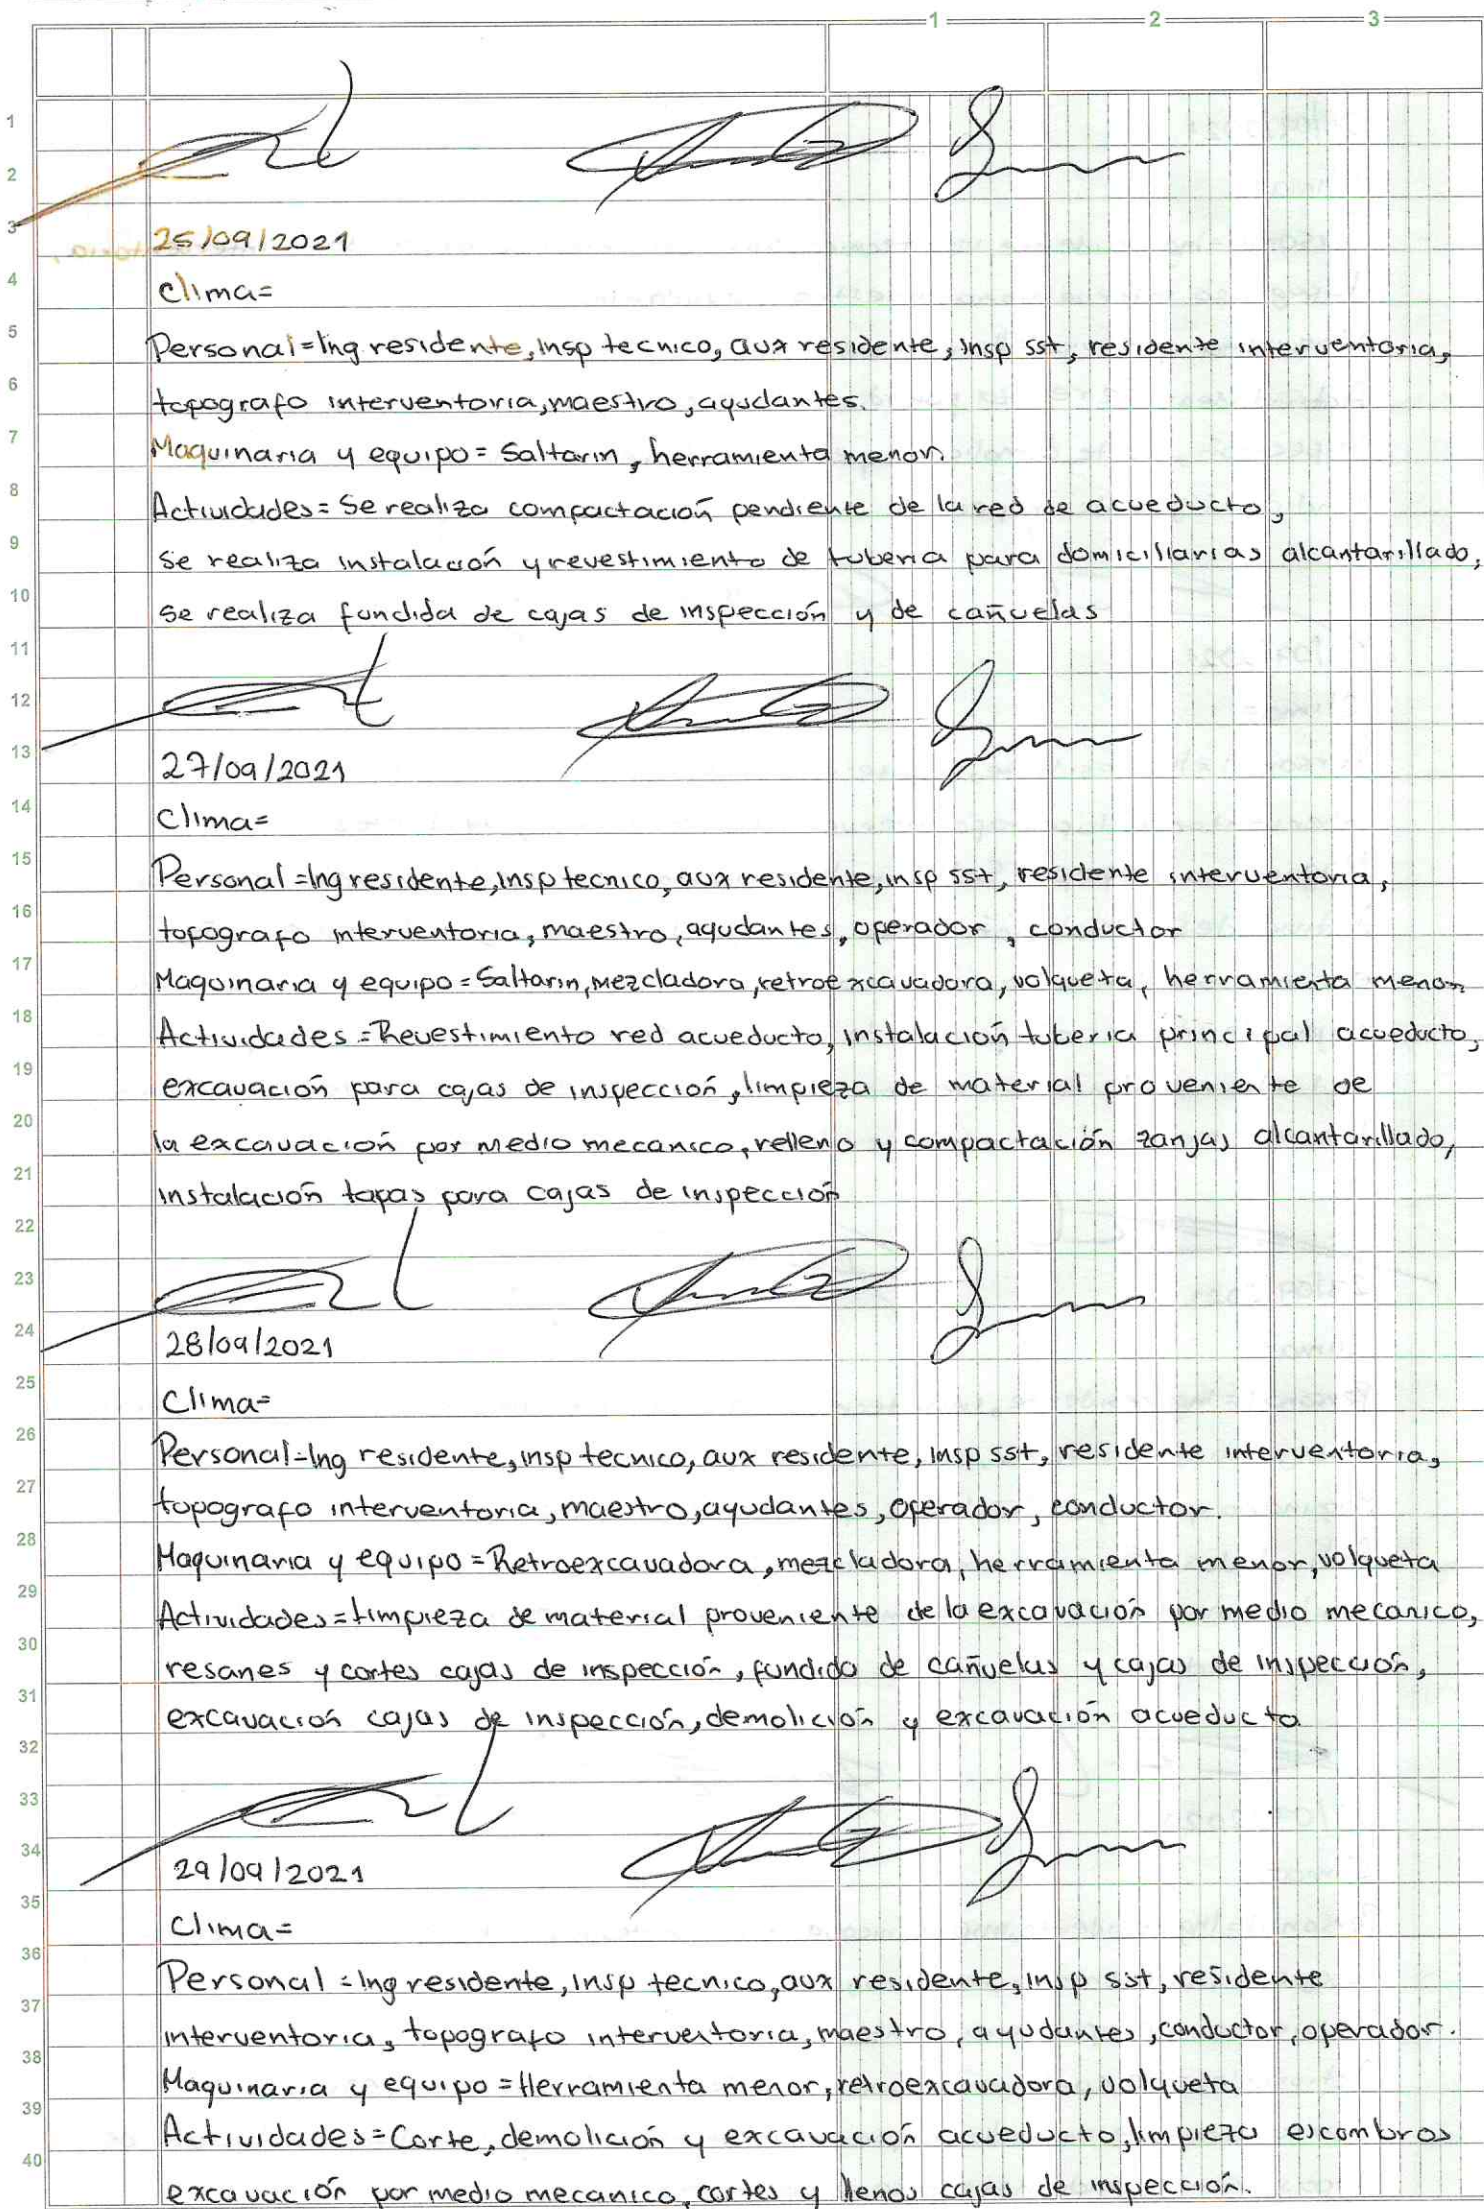 1 2 3
1
2
3
25/09/2021
4
Clima=
5
Personal=Ing residente, insp tecnico, aux residente, insp sst, residente interventoria,
6
topografo interventoria, maestro, ayudantes.
7
Maquinaria y equipo= Saltarin, herramienta menor.
8
Actividades= Se realiza compactación pendiente de la red de acueducto,
9
se realiza instalación y revestimiento de tuberia para domiciliarias alcantarillado,
10
se realiza fundida de cajas de inspección y de cañuelas
11
12
13
27/09/2021
14
Clima=
15
Personal=Ing residente, insp tecnico, aux residente, insp sst, residente interventoria,
16
topografo interventoria, maestro, ayudantes, operador, conductor
17
Maquinaria y equipo= Saltarin, mezcladora, retroexcavadora, volqueta, herramienta menor
18
Actividades= Revestimiento red acueducto, instalación tuberia principal acueducto,
19
excavación para cajas de inspección, limpieza de material proveniente de
20
la excavación por medio mecanico, relleno y compactación zanjas alcantarillado,
21
instalación tapas para cajas de inspección
22
23
24
28/09/2021
25
Clima=
26
Personal=Ing residente, insp tecnico, aux residente, insp sst, residente interventoria,
27
topografo interventoria, maestro, ayudantes, operador, conductor.
28
Maquinaria y equipo= Retroexcavadora, mezcladora, herramienta menor, volqueta
29
Actividades= Limpieza de material proveniente de la excavación por medio mecanico,
30
resanes y cortes cajas de inspección, fundido de cañuelas y cajas de inspección,
31
excavación cajas de inspección, demolición y excavación acueducto
32
33
34
29/09/2021
35
Clima=
36
Personal=Ing residente, insp tecnico, aux residente, insp sst, residente
37
interventoria, topografo interventoria, maestro, ayudantes, conductor, operador.
38
Maquinaria y equipo= Herramienta menor, retroexcavadora, volqueta
39
Actividades= Corte, demolición y excavación acueducto, limpieza escombros
40
excavación por medio mecanico, cortes y llenos cajas de inspección.